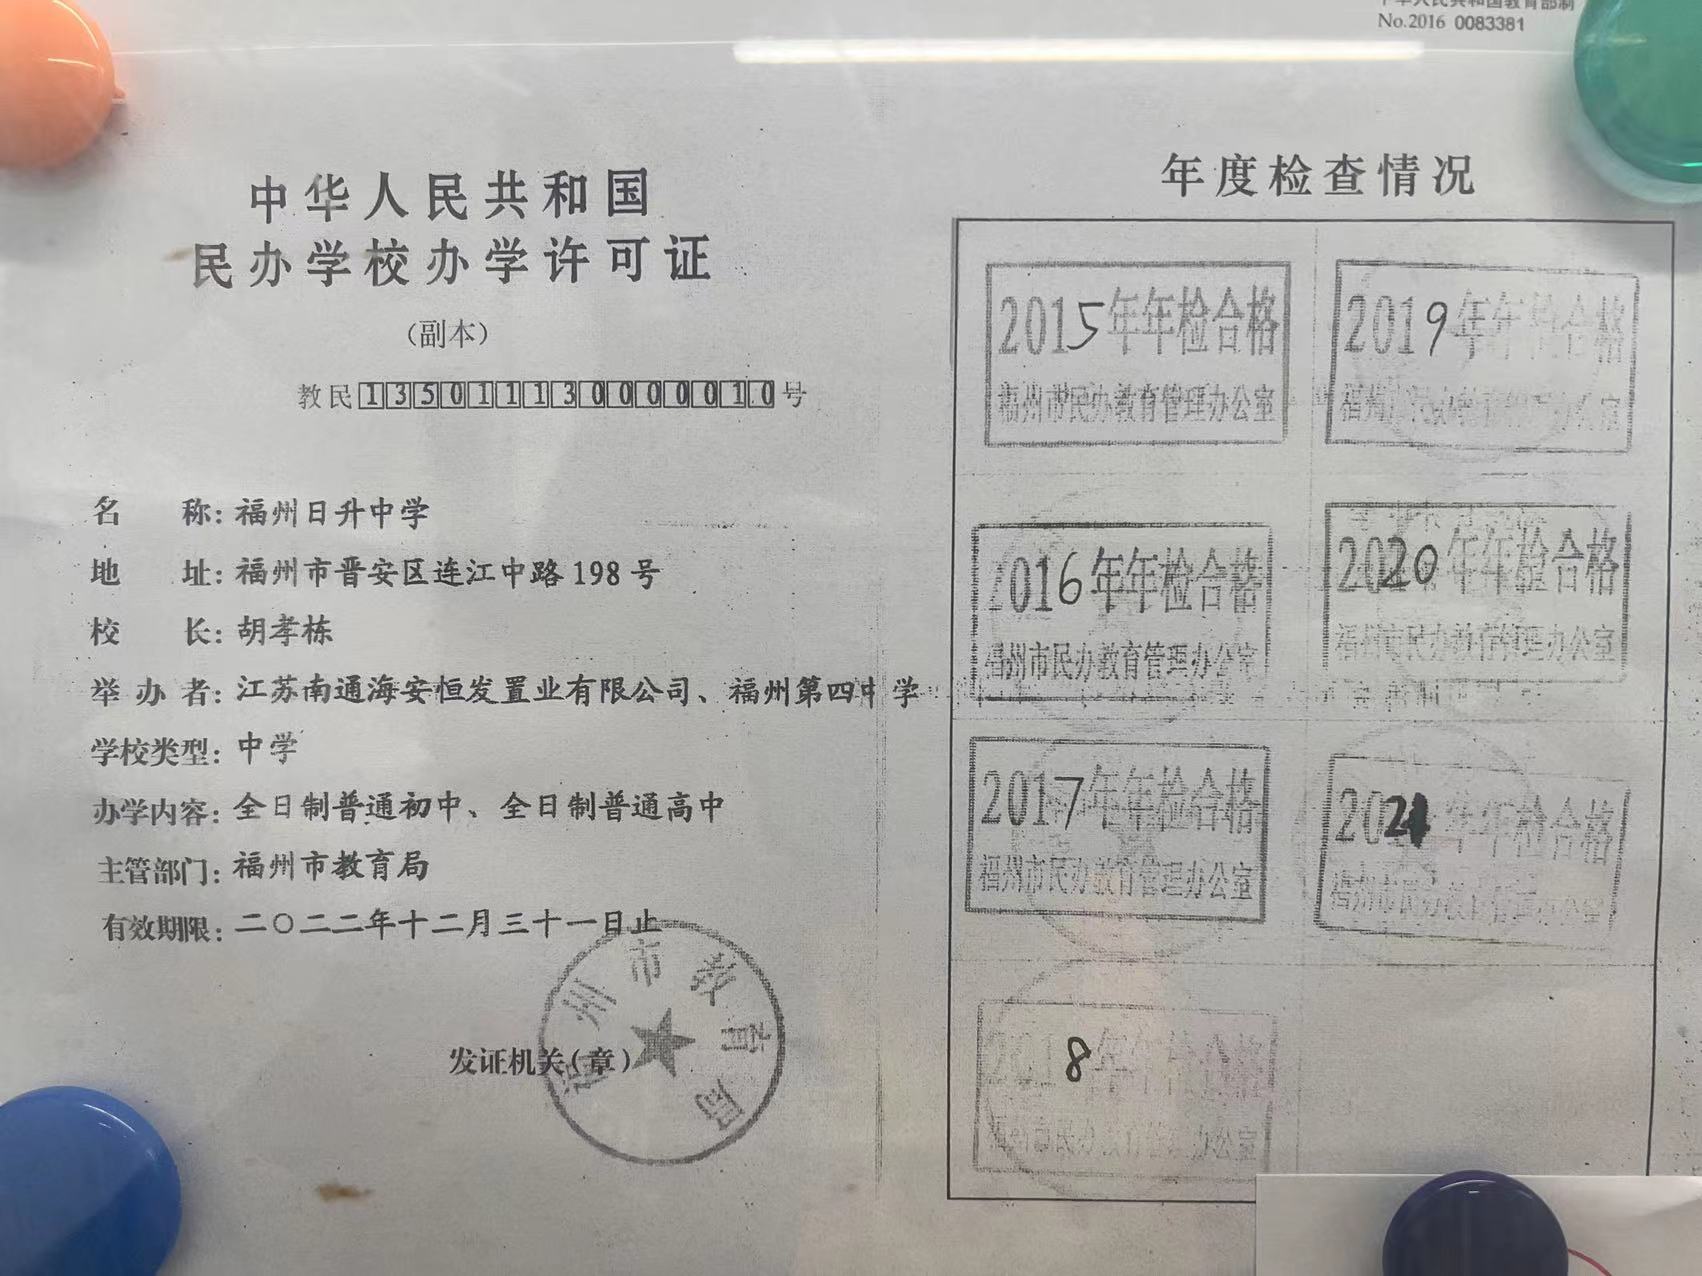 中华人民共和国教育部制
No.2016 0083381
中华人民共和国
民办学校办学许可证
(副本)
教民135011130000010号
名称：福州日升中学
地址：福州市晋安区连江中路198号
校长：胡孝栋
举办者：江苏南通海安恒发置业有限公司、福州第四中学
学校类型：中学
办学内容：全日制普通初中、全日制普通高中
主管部门：福州市教育局
有效期限：二〇二二年十二月三十一日止
发证机关(章)
福州市教育局
年度检查情况
2015年年检合格
福州市民办教育管理办公室
2019年年检合格
福州市民办教育管理办公室
2016年年检合格
福州市民办教育管理办公室
2020年年检合格
福州市民办教育管理办公室
2017年年检合格
福州市民办教育管理办公室
2021年年检合格
福州市民办教育管理办公室
2018年年检合格
福州市民办教育管理办公室